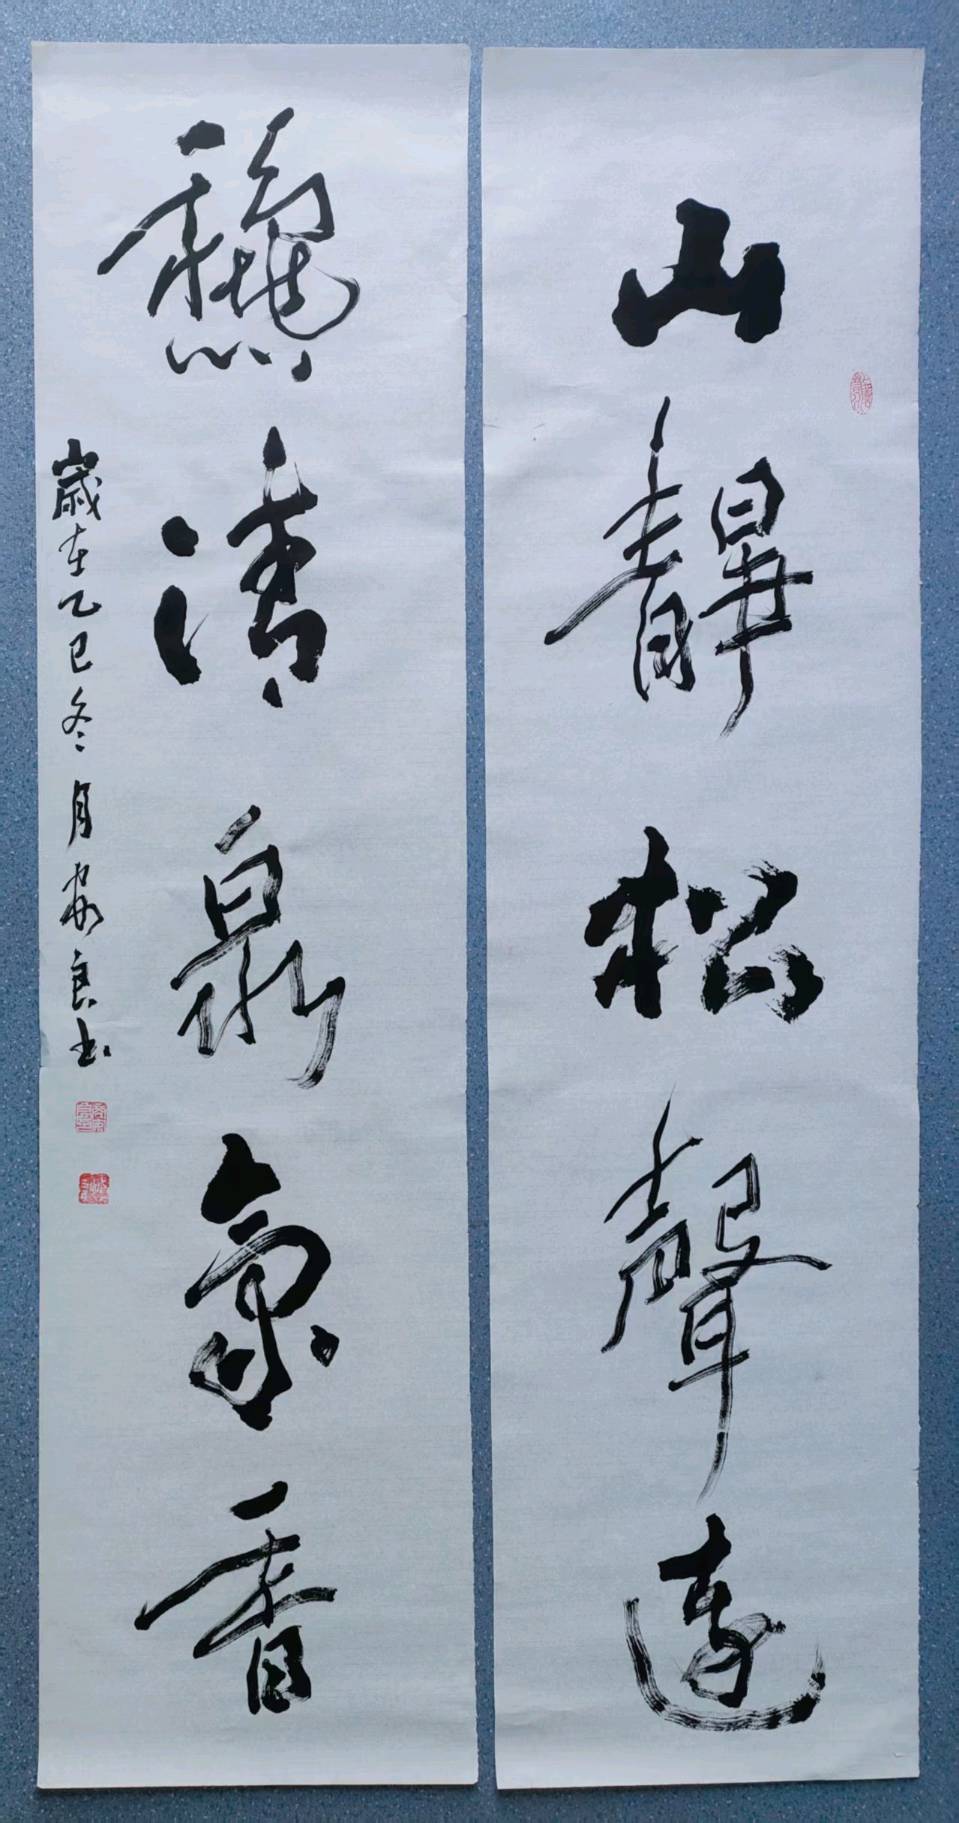 山靜松聲遠
龝清泉氣香
歲在乙巳冬月良书